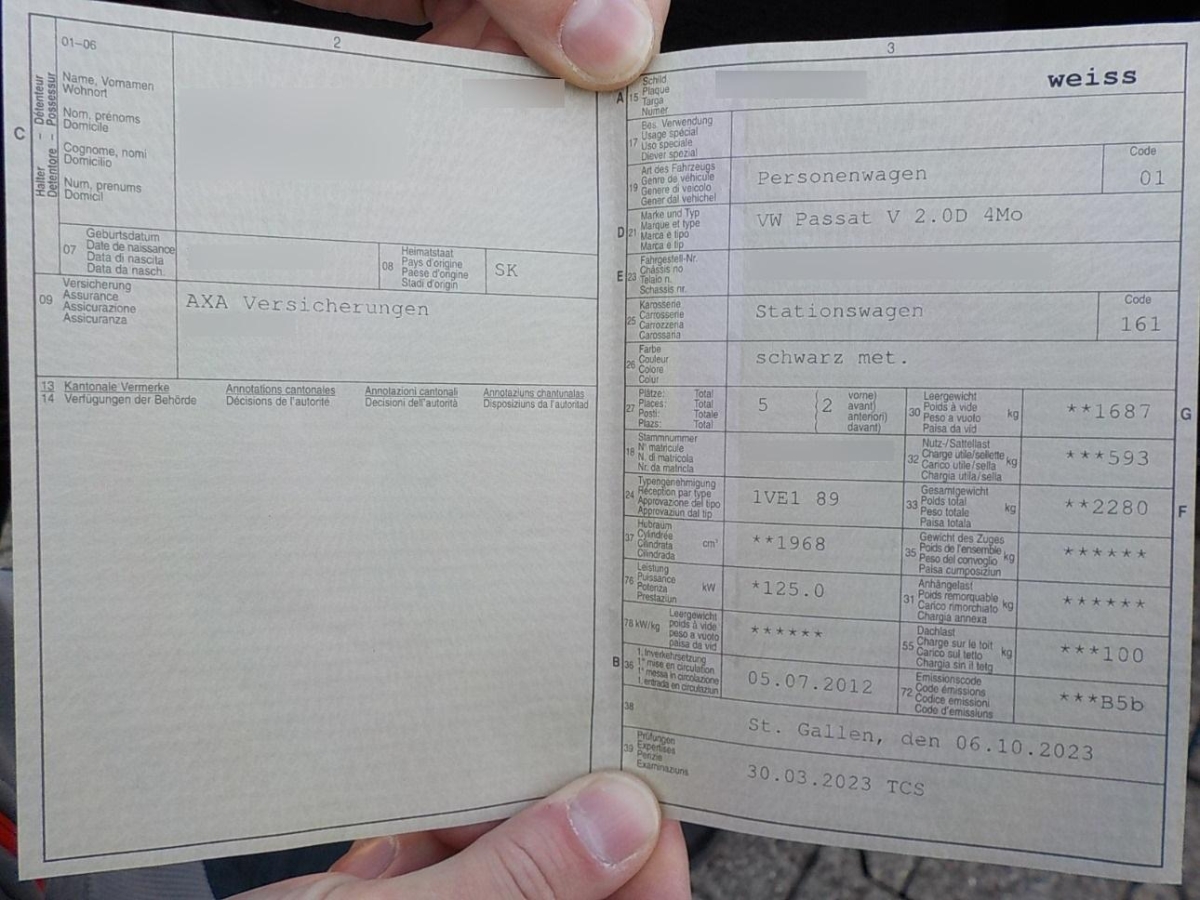 2
01-06
Halter - Détenteur
Detentore - Possessur
C
Name, Vornamen
Wohnort
Nom, prénoms
Domicile
Cognome, nomi
Domicilio
Num, prenums
Domicil
07
Geburtsdatum
Date de naissance
Data di nascita
Data da nasch.
08
Heimatstaat
Pays d'origine
Paese d'origine
Stadi d'origin
SK
09
Versicherung
Assurance
Assicurazione
Assicuranza
AXA Versicherungen
13 Kantonale Vermerke Annotations cantonales Annotazioni cantonali Annotaziuns chantunalas
14 Verfügungen der Behörde Décisions de l'autorité Decisioni dell'autorità Disposiziuns da l'autoritad
3
A 15
Schild
Plaque
Targa
Numer
weiss
17
Bes. Verwendung
Usage spécial
Uso speciale
Diever spezial
19
Art des Fahrzeugs
Genre de véhicule
Genere di veicolo
Gener dal vehichel
Personenwagen
Code
01
D 21
Marke und Typ
Marque et type
Marca e tipo
Marca e tip
VW Passat V 2.0D 4Mo
E 23
Fahrgestell-Nr.
Châssis no
Telaio n.
Schassis nr.
25
Karosserie
Carrosserie
Carrozzeria
Carossaria
Stationswagen
Code
161
26
Farbe
Couleur
Colore
Colur
schwarz met.
27
Plätze: Total
Places: Total
Posti: Totale
Plazs: Total
5
(2
vorne)
avant)
anteriori)
davant)
30
Leergewicht
Poids à vide
Peso a vuoto
Paisa da vid
kg
**1687
G
18
Stammnummer
N° matricule
N. di matricola
Nr. da matricla
32
Nutz-/Sattellast
Charge utile/sellette
Carico utile/sella
Chargia utila/sella
kg
***593
24
Typengenehmigung
Réception par type
Approvazione del tipo
Approvaziun dal tip
1VE1 89
33
Gesamtgewicht
Poids total
Peso totale
Paisa totala
kg
**2280
F
37
Hubraum
Cylindrée
Cilindrata
Cilindrada
cm³
**1968
35
Gewicht des Zuges
Poids de l'ensemble
Peso del convoglio
Paisa cumposiziun
kg
******
76
Leistung
Puissance
Potenza
Prestaziun
kW
*125.0
31
Anhängelast
Poids remorquable
Carico rimorchiato
Chargia annexa
kg
******
78 kW/kg
Leergewicht
poids à vide
peso a vuoto
paisa da vid
******
55
Dachlast
Charge sur le toit
Carico sul tetto
Chargia sin il tetg
kg
***100
B 36
1. Inverkehrsetzung
1re mise en circulation
1a messa in circolazione
1. entrada en circulaziun
05.07.2012
72
Emissionscode
Code émissions
Codice emissioni
Code d'emissiuns
***B5b
38
St. Gallen, den 06.10.2023
39
Prüfungen
Expertises
Perizie
Examinaziuns
30.03.2023 TCS